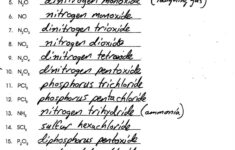 5. N₂O dinitrogen monoxide (laughing gas)
6. NO nitrogen monoxide
7. N₂O₃ dinitrogen trioxide
8. NO₂ nitrogen dioxide
9. N₂O₄ dinitrogen tetroxide
10. N₂O₅ dinitrogen pentoxide
11. PCl₃ phosphorus trichloride
12. PCl₅ phosphorus pentachloride
13. NH₃ nitrogen trihydride (ammonia)
14. SCl₆ sulfur hexachloride
15. P₂O₅ diphosphorus pentoxide